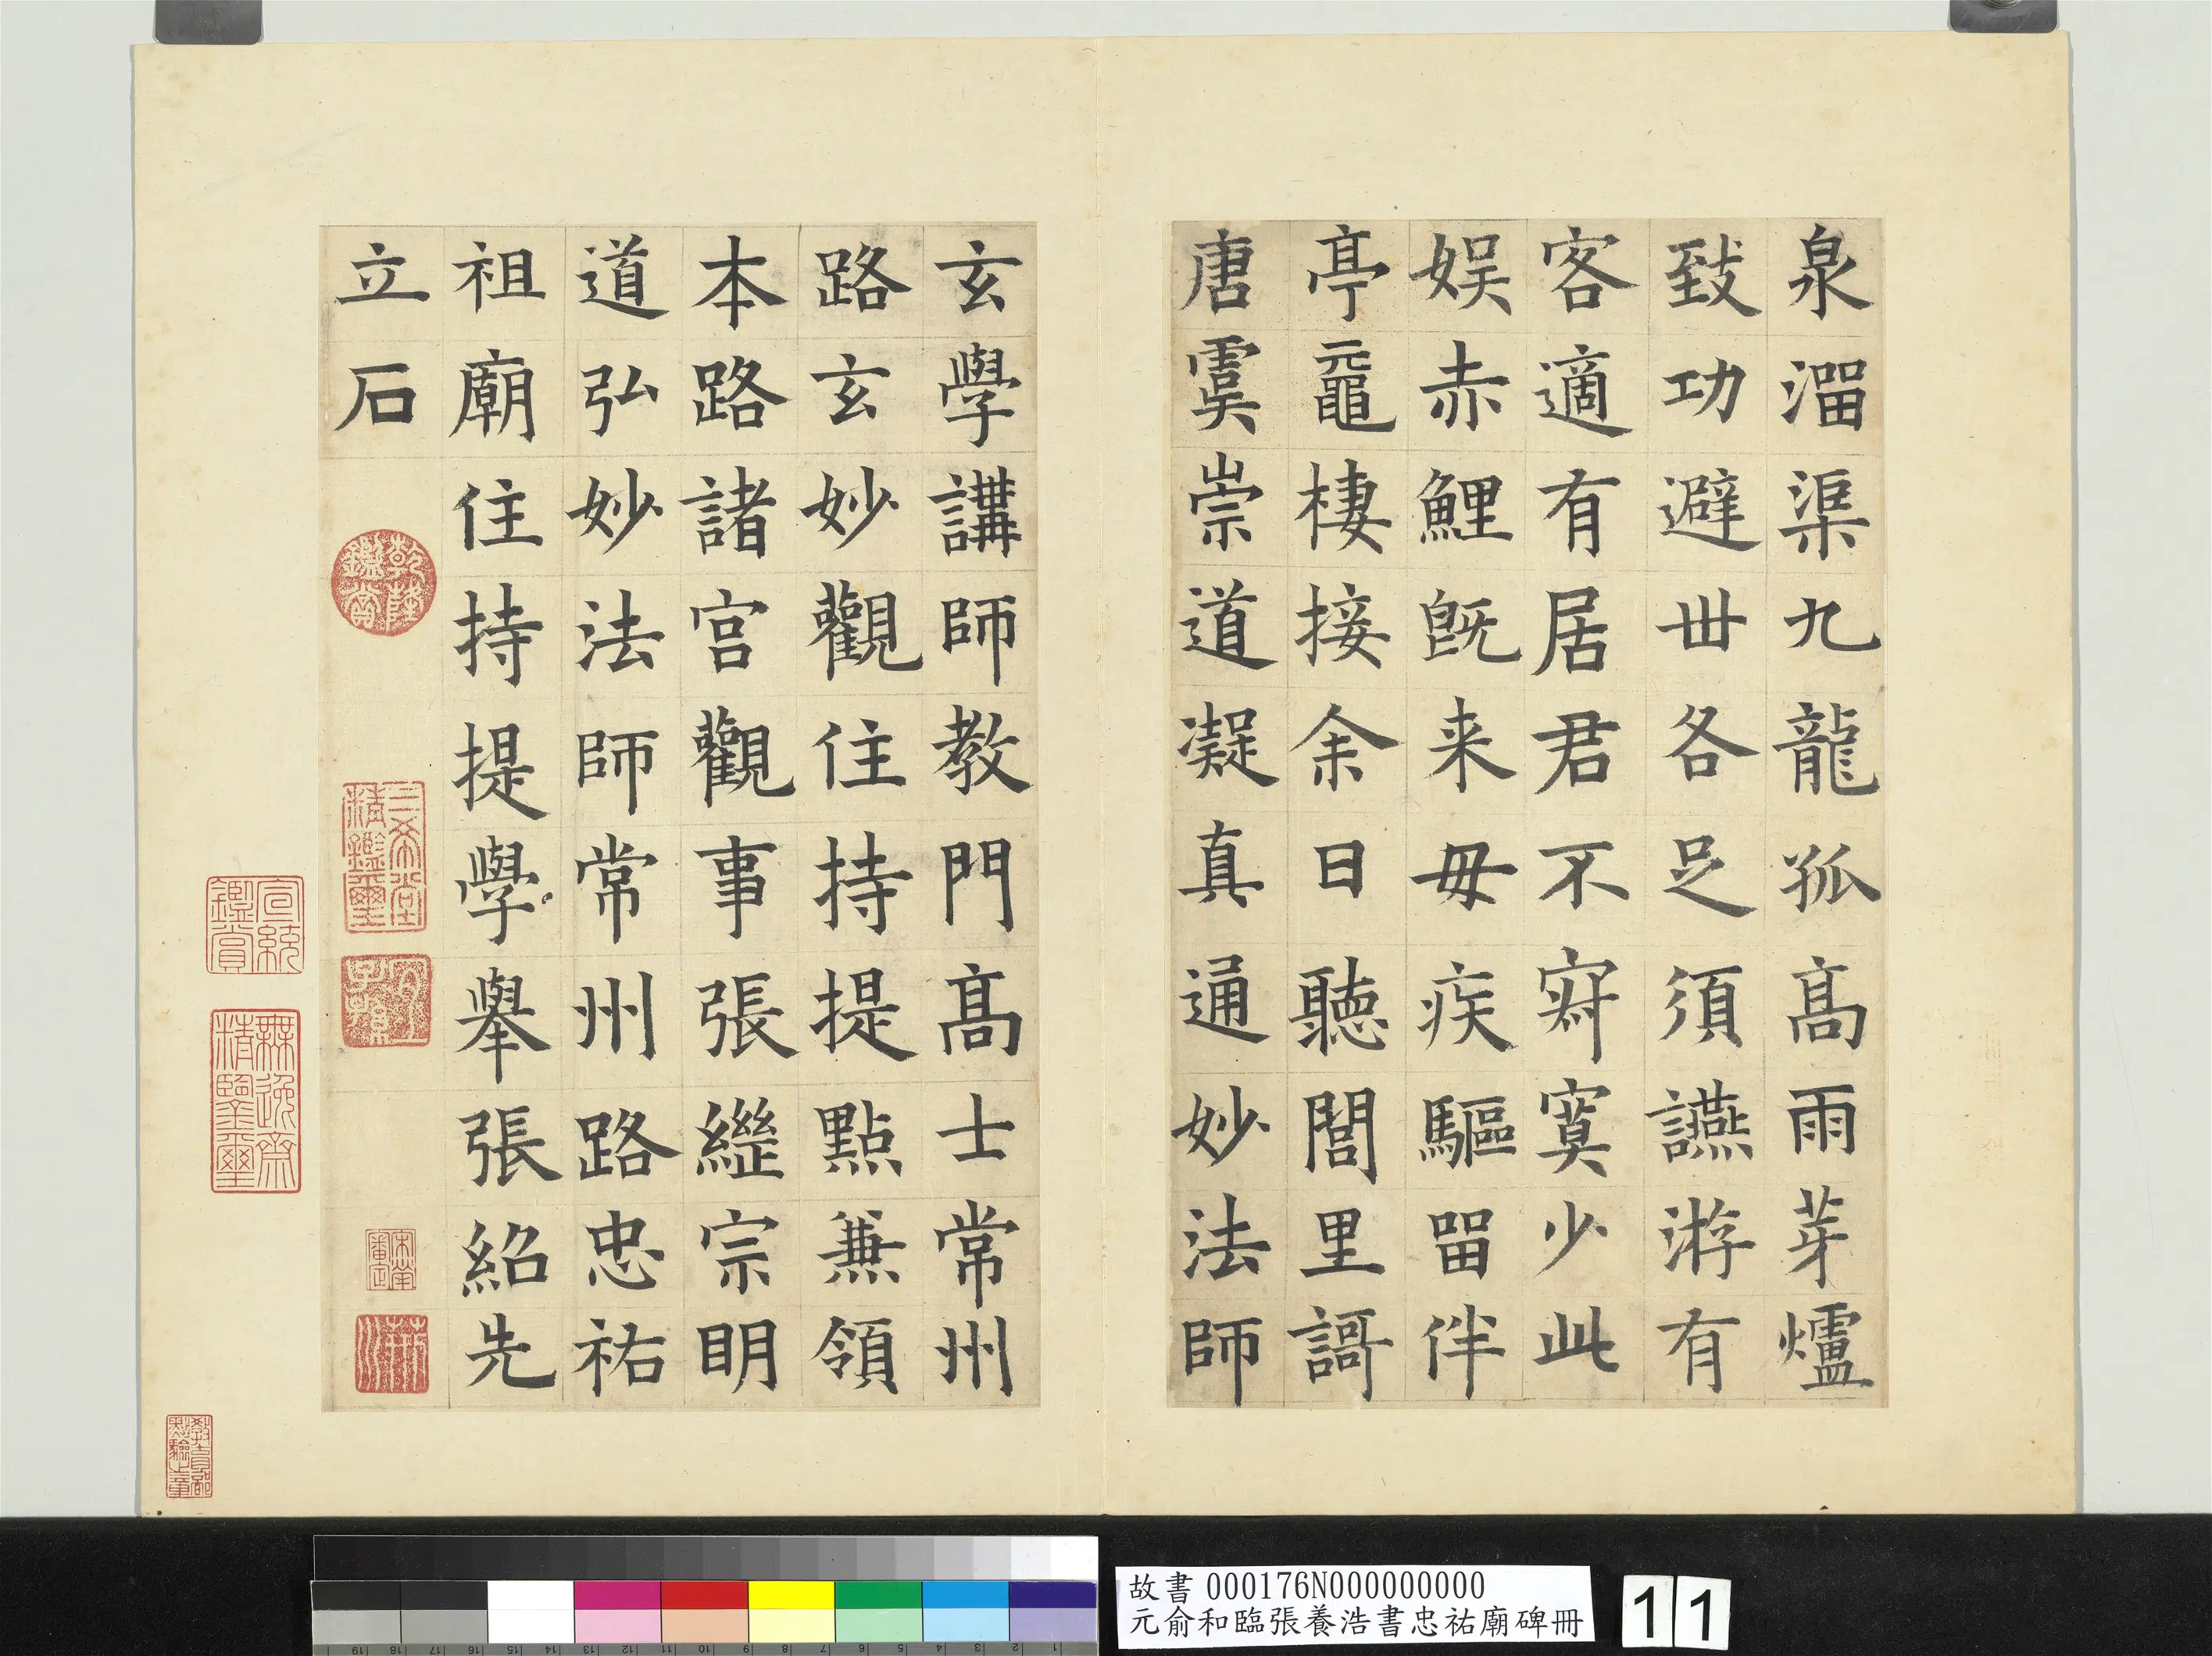 泉溜渠九龍孤高雨芽爐
致功避世各足須讌游有
客適有居君不寂寞少此
娛赤鯉既来毋疾驅留伴
亭黿棲接余日聽閭里謌
唐虞崇道凝真通妙法師
玄學講師教門高士常州
路玄妙觀住持提點兼領
本路諸宮觀事張繼宗明
道弘妙法師常州路忠祐
祖廟住持提學舉張紹先
立石
乾隆鑑賞
三希堂精鑑璽
宜子孫
宣統鑑賞
無逸齋精鑒璽
宋犖審定
教育部點驗之章
故書 000176N000000000
元俞和臨張養浩書忠祐廟碑冊
11